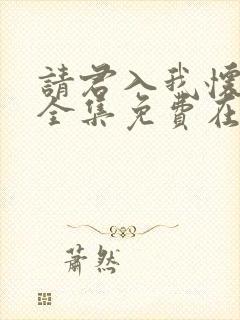 請君入我懷
全集免費在
蕭然